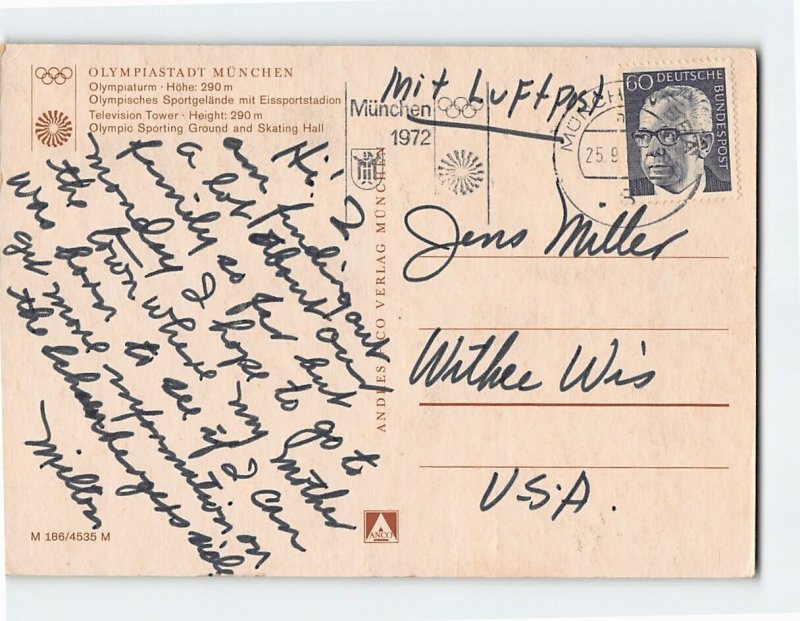 OLYMPIASTADT MÜNCHEN
Olympiaturm · Höhe: 290 m
Olympisches Sportgelände mit Eissportstadion
Television Tower · Height: 290 m
Olympic Sporting Ground and Skating Hall
Mit Luftpost
München
1972
MÜNCH
25.9.
60 DEUTSCHE
BUNDESPOST
Hi! I
am finding out
a lot about our
family so far but
Monday I hope to go to
the town where my Mother
was born to see if I can
get more information on
the side
Milton
ANDRES CO VERLAG MÜNCHEN
Jens Miller
Withee Wis
U.S.A.
M 186/4535 M
ANCO